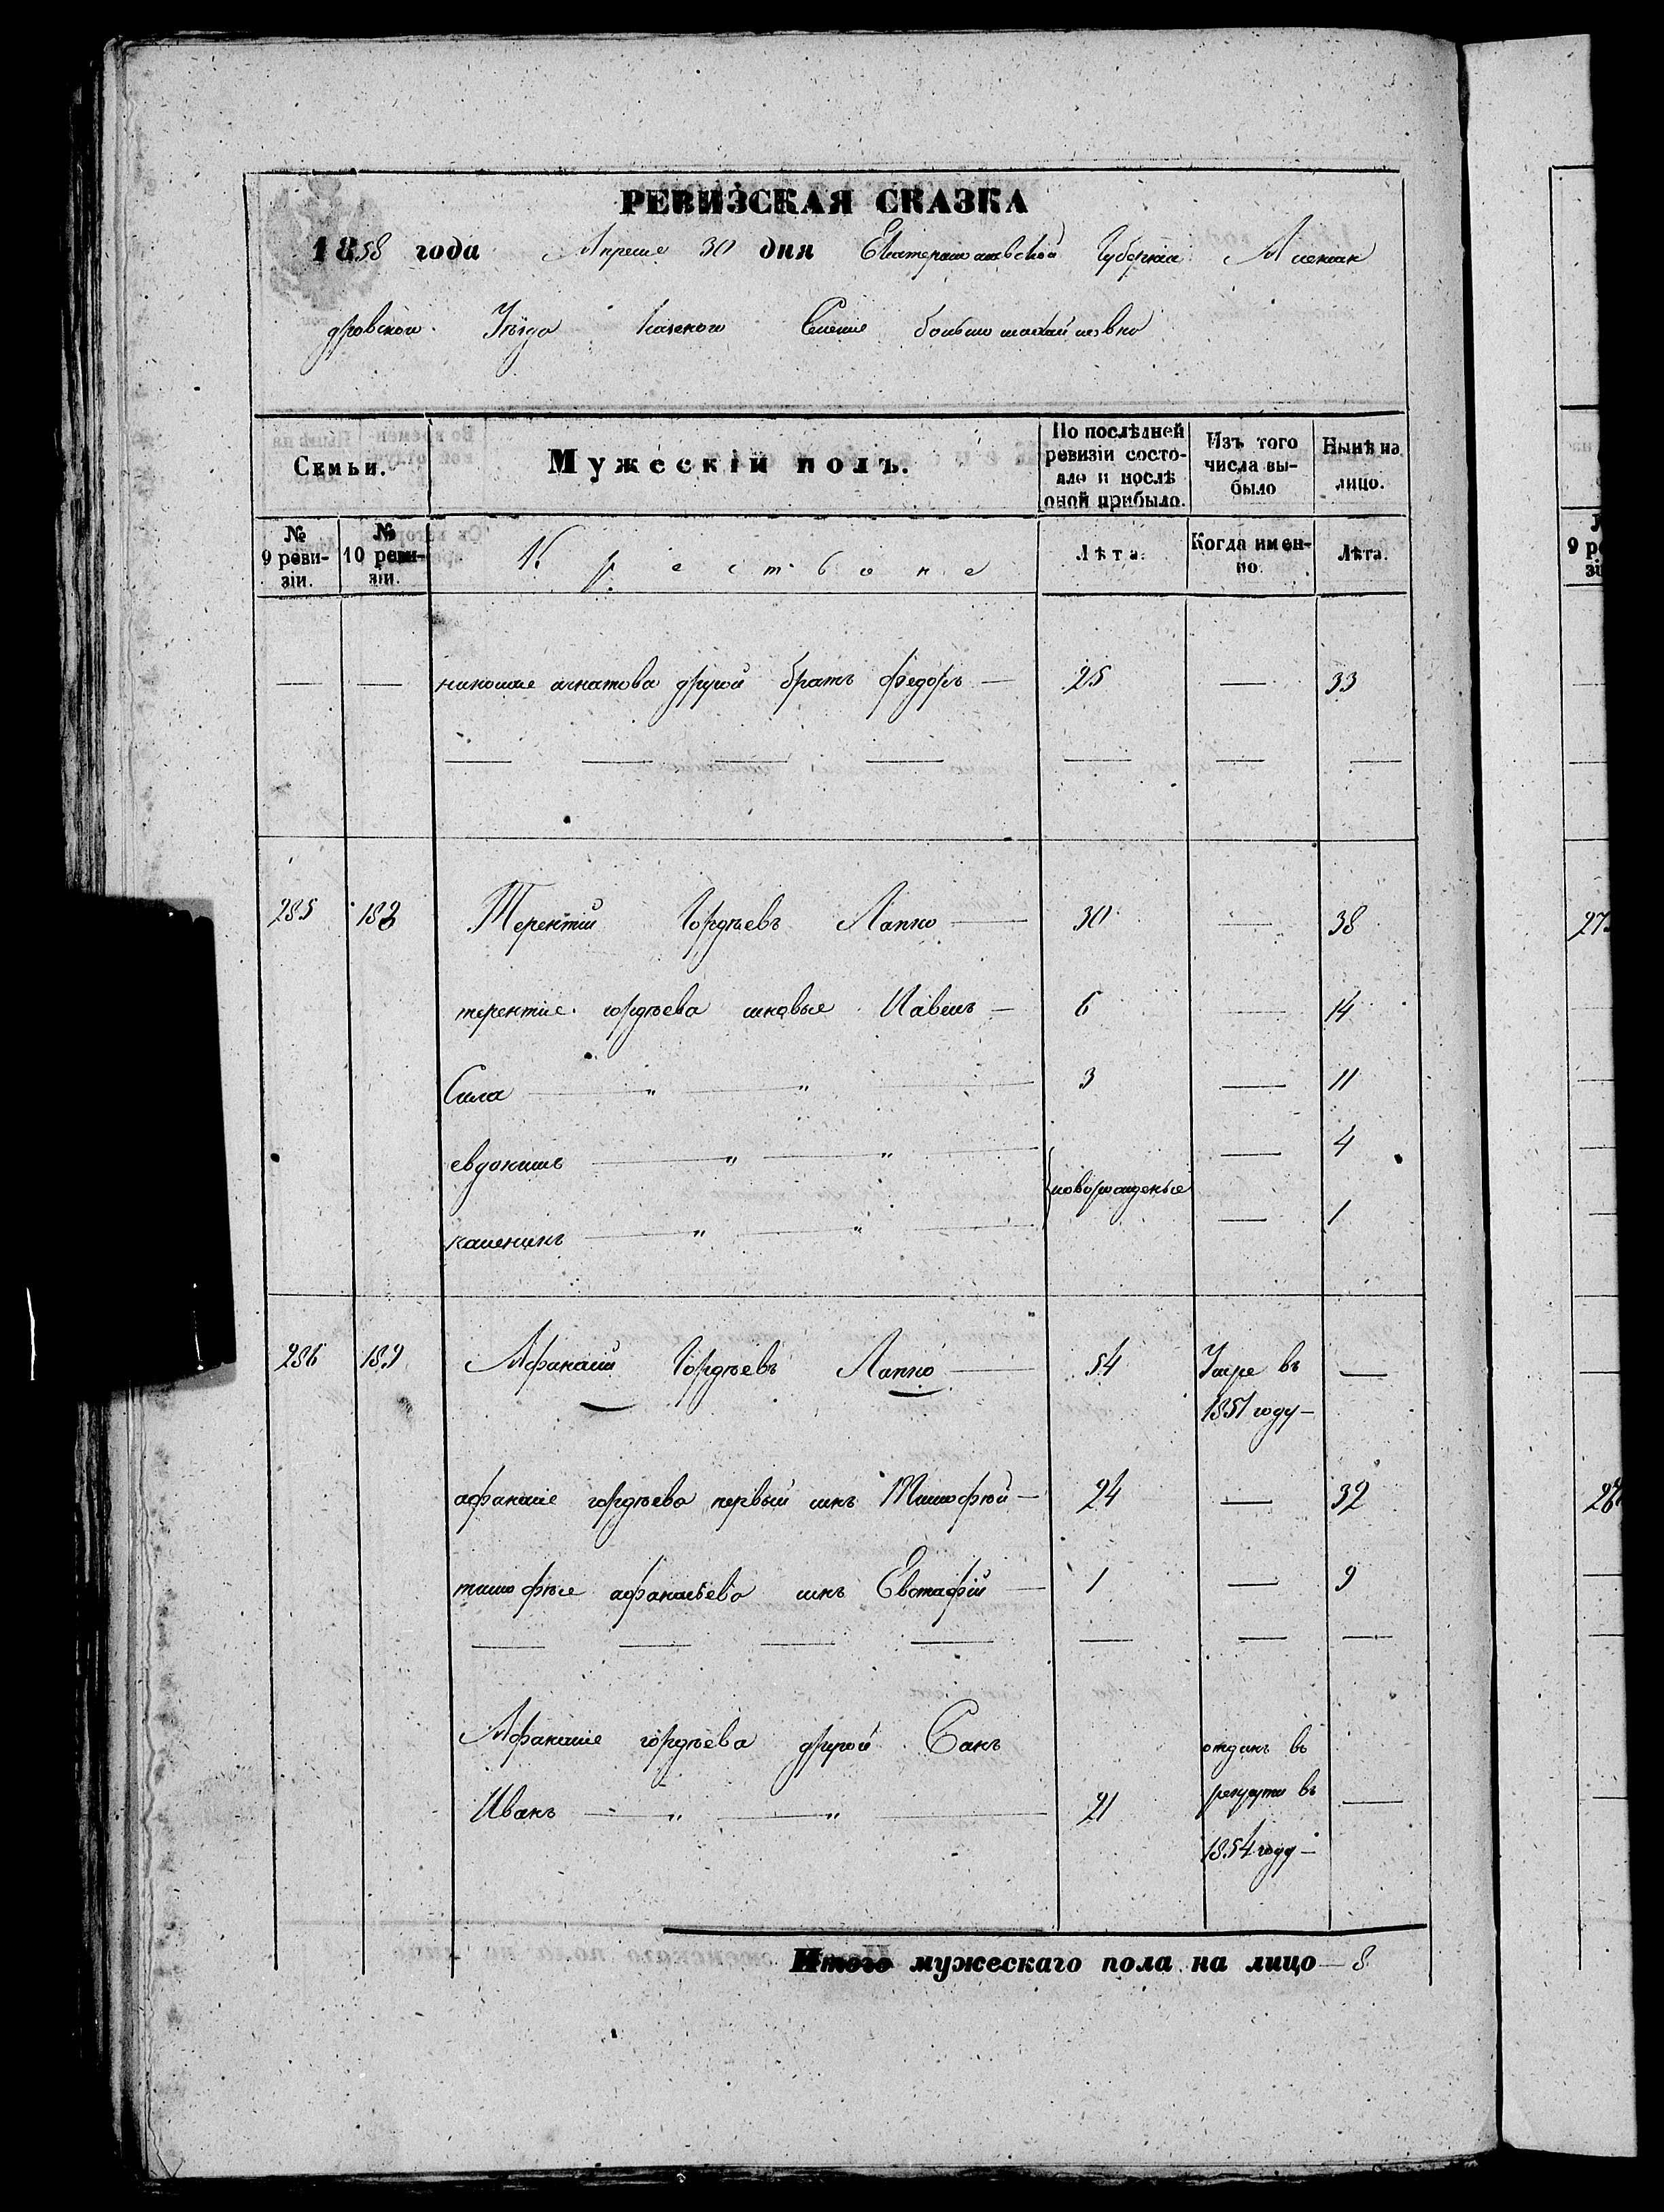 РЕВИЗСКАЯ СКАЗКА
1858 года Апреля 30 дня Екатеринославской Губернии Алексан
дровского Уѣзда Казенного Селения большомихайловки
Семьи.
Мужескій полъ.
По послѣдней ревизіи состояло и послѣ оной прибыло.
Изъ того числа выбыло
Нынѣ на лицо.
№ 9 ревизіи.
№ 10 ревизіи.
Крестьяне
Лѣта.
Когда именно.
Лѣта.
— — николая игнатова другой братъ федоръ — 25 — 33
285 188 Терентій Гордѣевъ Лапко — 30 — 38
терентія гордѣева сыновья Павелъ — 6 — 14
Сила — " — " — 3 — 11
евдокимъ — " — " — — 4
новорожденые
каленикъ — " — " — — 1
286 189 Афанасій Гордѣевъ Лапко — 54 Умре въ —
1851 году —
афанасія гордѣева первый сынъ Тимофѣй — 24 — 32
тимофѣя афанасьева сынъ Евстафій — 1 — 9
Афанасія гордѣева другой Сынъ отданъ въ
Иванъ — " — " — 21 рекруты въ —
1854 году —
Итого мужескаго пола на лицо — 8